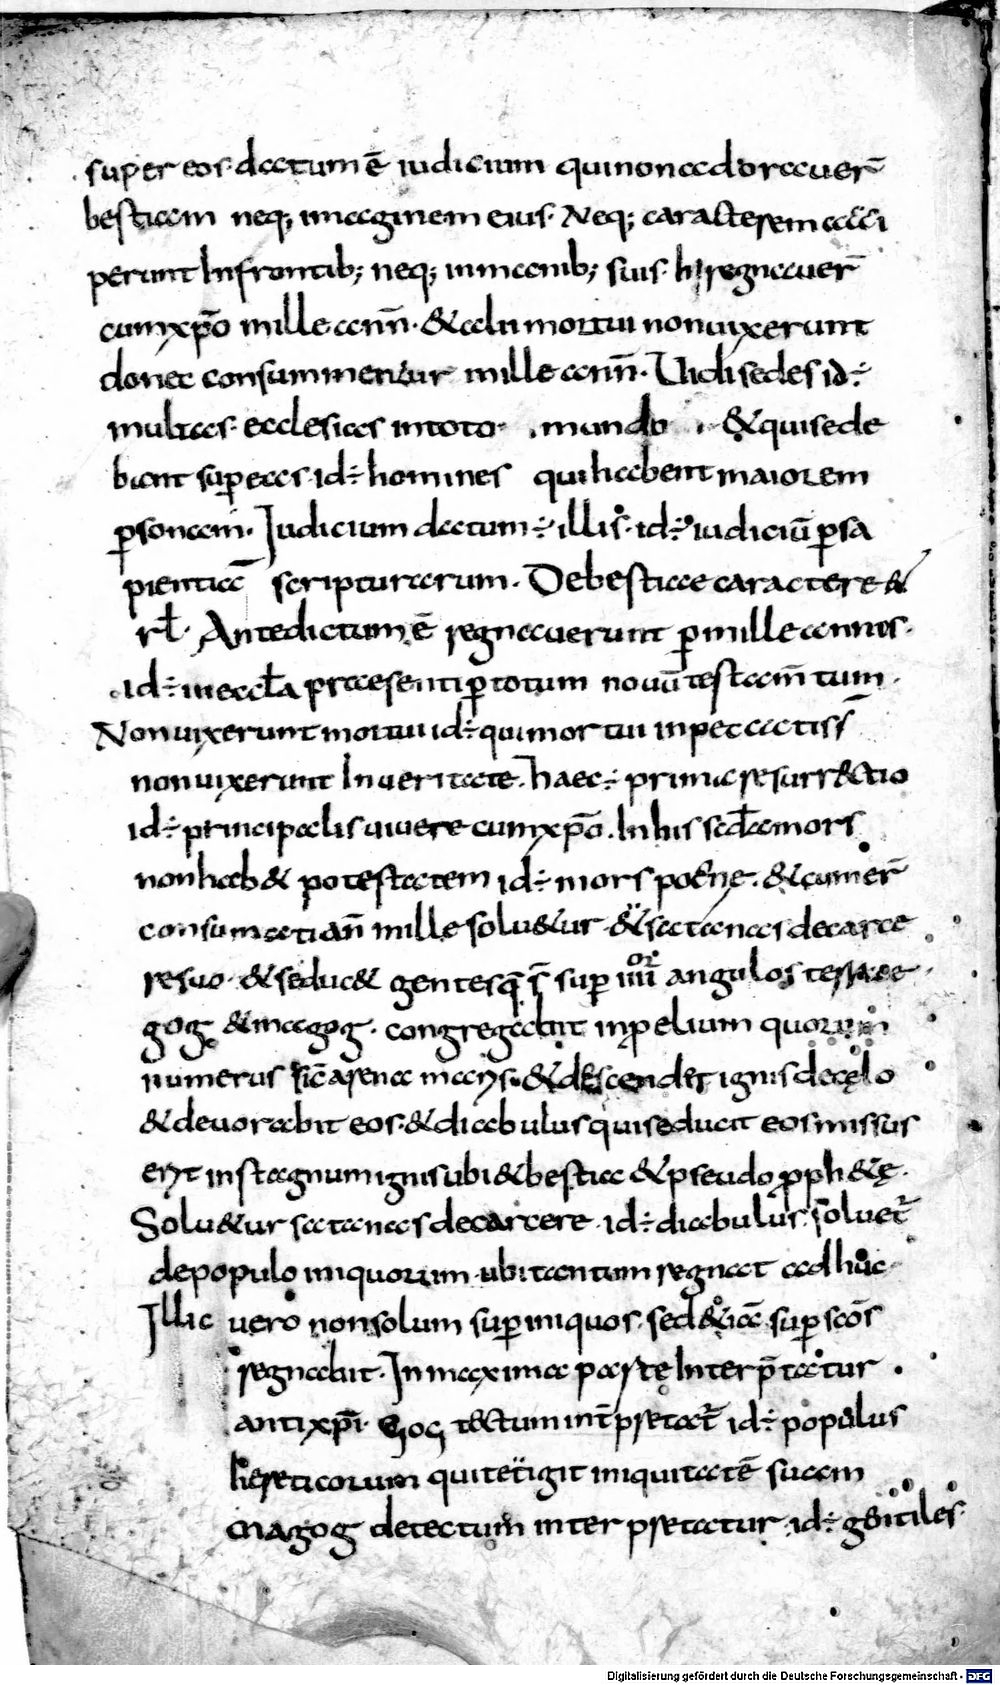 super eos. datum ē iudicium qui non adorauer̄
bestiam neq; imaginem eius. Neq; caracterem acci
perunt In frontib; neq; in manib; suis. hi regnauer̄
cum xp̄o mille ann̄. & alii mortui non uixerunt
donec consummentur mille ann̄. Uidi sedes id÷
multas ecclesias in toto mundo & qui sede
bant sup eas. id÷ homines qui habent maiorem
p̱sonam. Iudicium datum ÷ illis. id÷ iudiciū p̱ sa
pientiā scripturarum. De bestiae caractere &
rł. Ante dictum ē regnauerunt p̱ mille annos.
id÷ in eccła praesenti p̱ totum nouū testam̄tum.
Non uixerunt mortui id÷ qui mortui in peccatis s̄
non uixerunt In ueritate. haec ÷ prima resurr&ctio
id÷ principalis uiuere cum xp̄o. In his scđa mors
non hab& potestatem id÷ mors poene. & cum er̄
consumati an̄ mille solu&ur. & satanas de carce
re suo. & seduc& gentes q̄ s̄ sup IIII or angulos terrae
gog & magog. congregabit in p̱elium quorum
numerus sic̄ arena maris. & descendet ignis de cęlo
& deuorabit eos. & diabulus qui seducit eos missus
erit in stagnum ignis ubi & bestia & pseudo pph&ę.
Solu&ur satanas de carcere. id÷ diabulus. soluet̄
de populo iniquorum. ubi tantum regnat adhuc.
Illic uero non solum sup iniquos. sed & iā sup sc̄os
regnabit. In maxima partę Interp̄tatur
antixp̄i. Gog tectum int̄pretat̄ id÷ populus
hereticorum qui tetigit iniquitatē suam
magog detectum interpretatur. id÷ gentiles
Digitalisierung gefördert durch die Deutsche Forschungsgemeinschaft - DFG